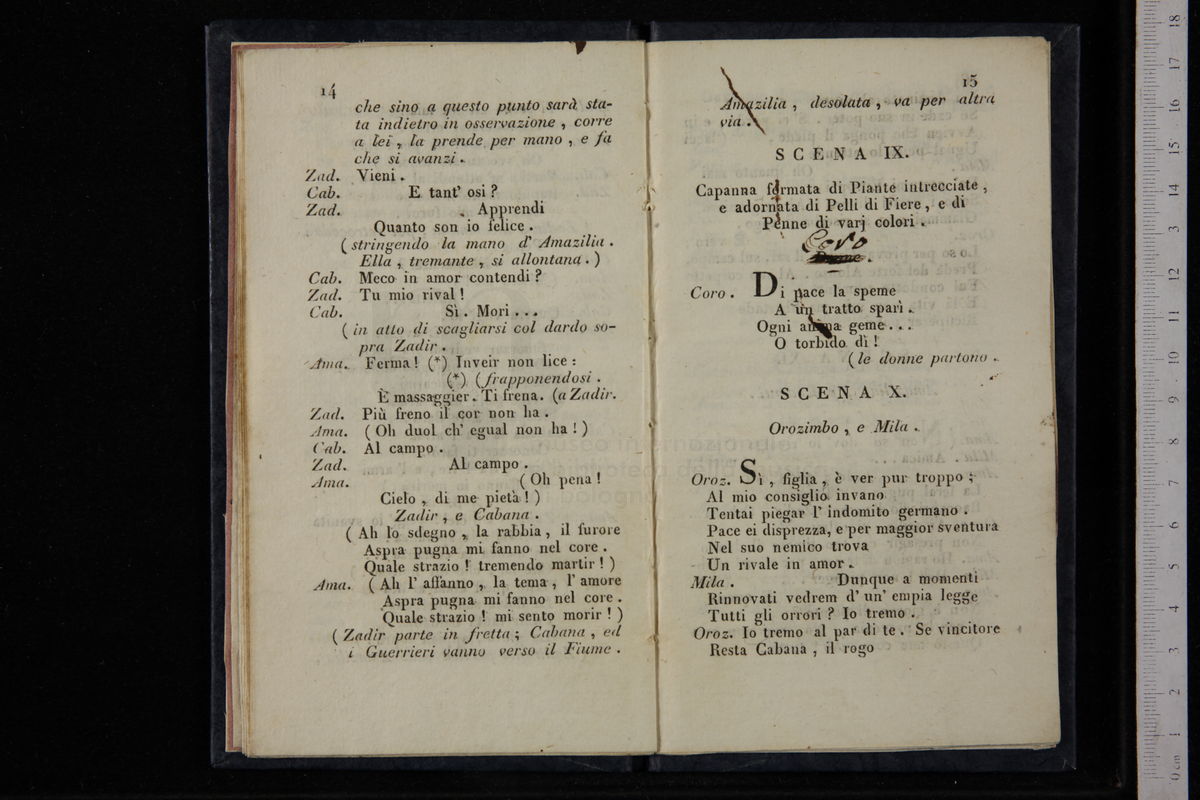 14
che sino a questo punto sarà sta-
ta indietro in osservazione, corre
a lei, la prende per mano, e fa
che si avanzi.
Zad. Vieni.
Cab. E tant' osi?
Zad. Apprendi
Quanto son io felice.
(stringendo la mano d' Amazilia.
Ella, tremante, si allontana.)
Cab. Meco in amor contendi?
Zad. Tu mio rival!
Cab. Sì. Mori...
(in atto di scagliarsi col dardo so-
pra Zadir.
Ama. Ferma! (*) Inveir non lice:
(*) (frapponendosi.
È massaggier. Ti frena. (a Zadir.
Zad. Più freno il cor non ha.
Ama. (Oh duol ch' egual non ha!)
Cab. Al campo.
Zad. Al campo.
Ama. (Oh pena!
Cielo, di me pietà!)
Zadir, e Cabana.
(Ah lo sdegno, la rabbia, il furore
Aspra pugna mi fanno nel core.
Quale strazio! tremendo martir!)
Ama. (Ah l' affanno, la tema, l' amore
Aspra pugna mi fanno nel core.
Quale strazio! mi sento morir!)
(Zadir parte in fretta; Cabana, ed
i Guerrieri vanno verso il Fiume.
15
Amazilia, desolata, va per altra
via.
SCENA IX.
Capanna formata di Piante intrecciate,
e adornata di Pelli di Fiere, e di
Penne di varj colori.
Coro
Coro. Di pace la speme
A un tratto sparì.
Ogni anima geme...
O torbido dì!
(le donne partono.
SCENA X.
Orozimbo, e Mila.
Oroz. Sì, figlia, è ver pur troppo;
Al mio consiglio invano
Tentai piegar l' indomito germano.
Pace ei disprezza, e per maggior sventura
Nel suo nemico trova
Un rivale in amor.
Mila. Dunque a momenti
Rinnovati vedrem d' un' empia legge
Tutti gli orrori? Io tremo.
Oroz. Io tremo al par di te. Se vincitore
Resta Cabana, il rogo